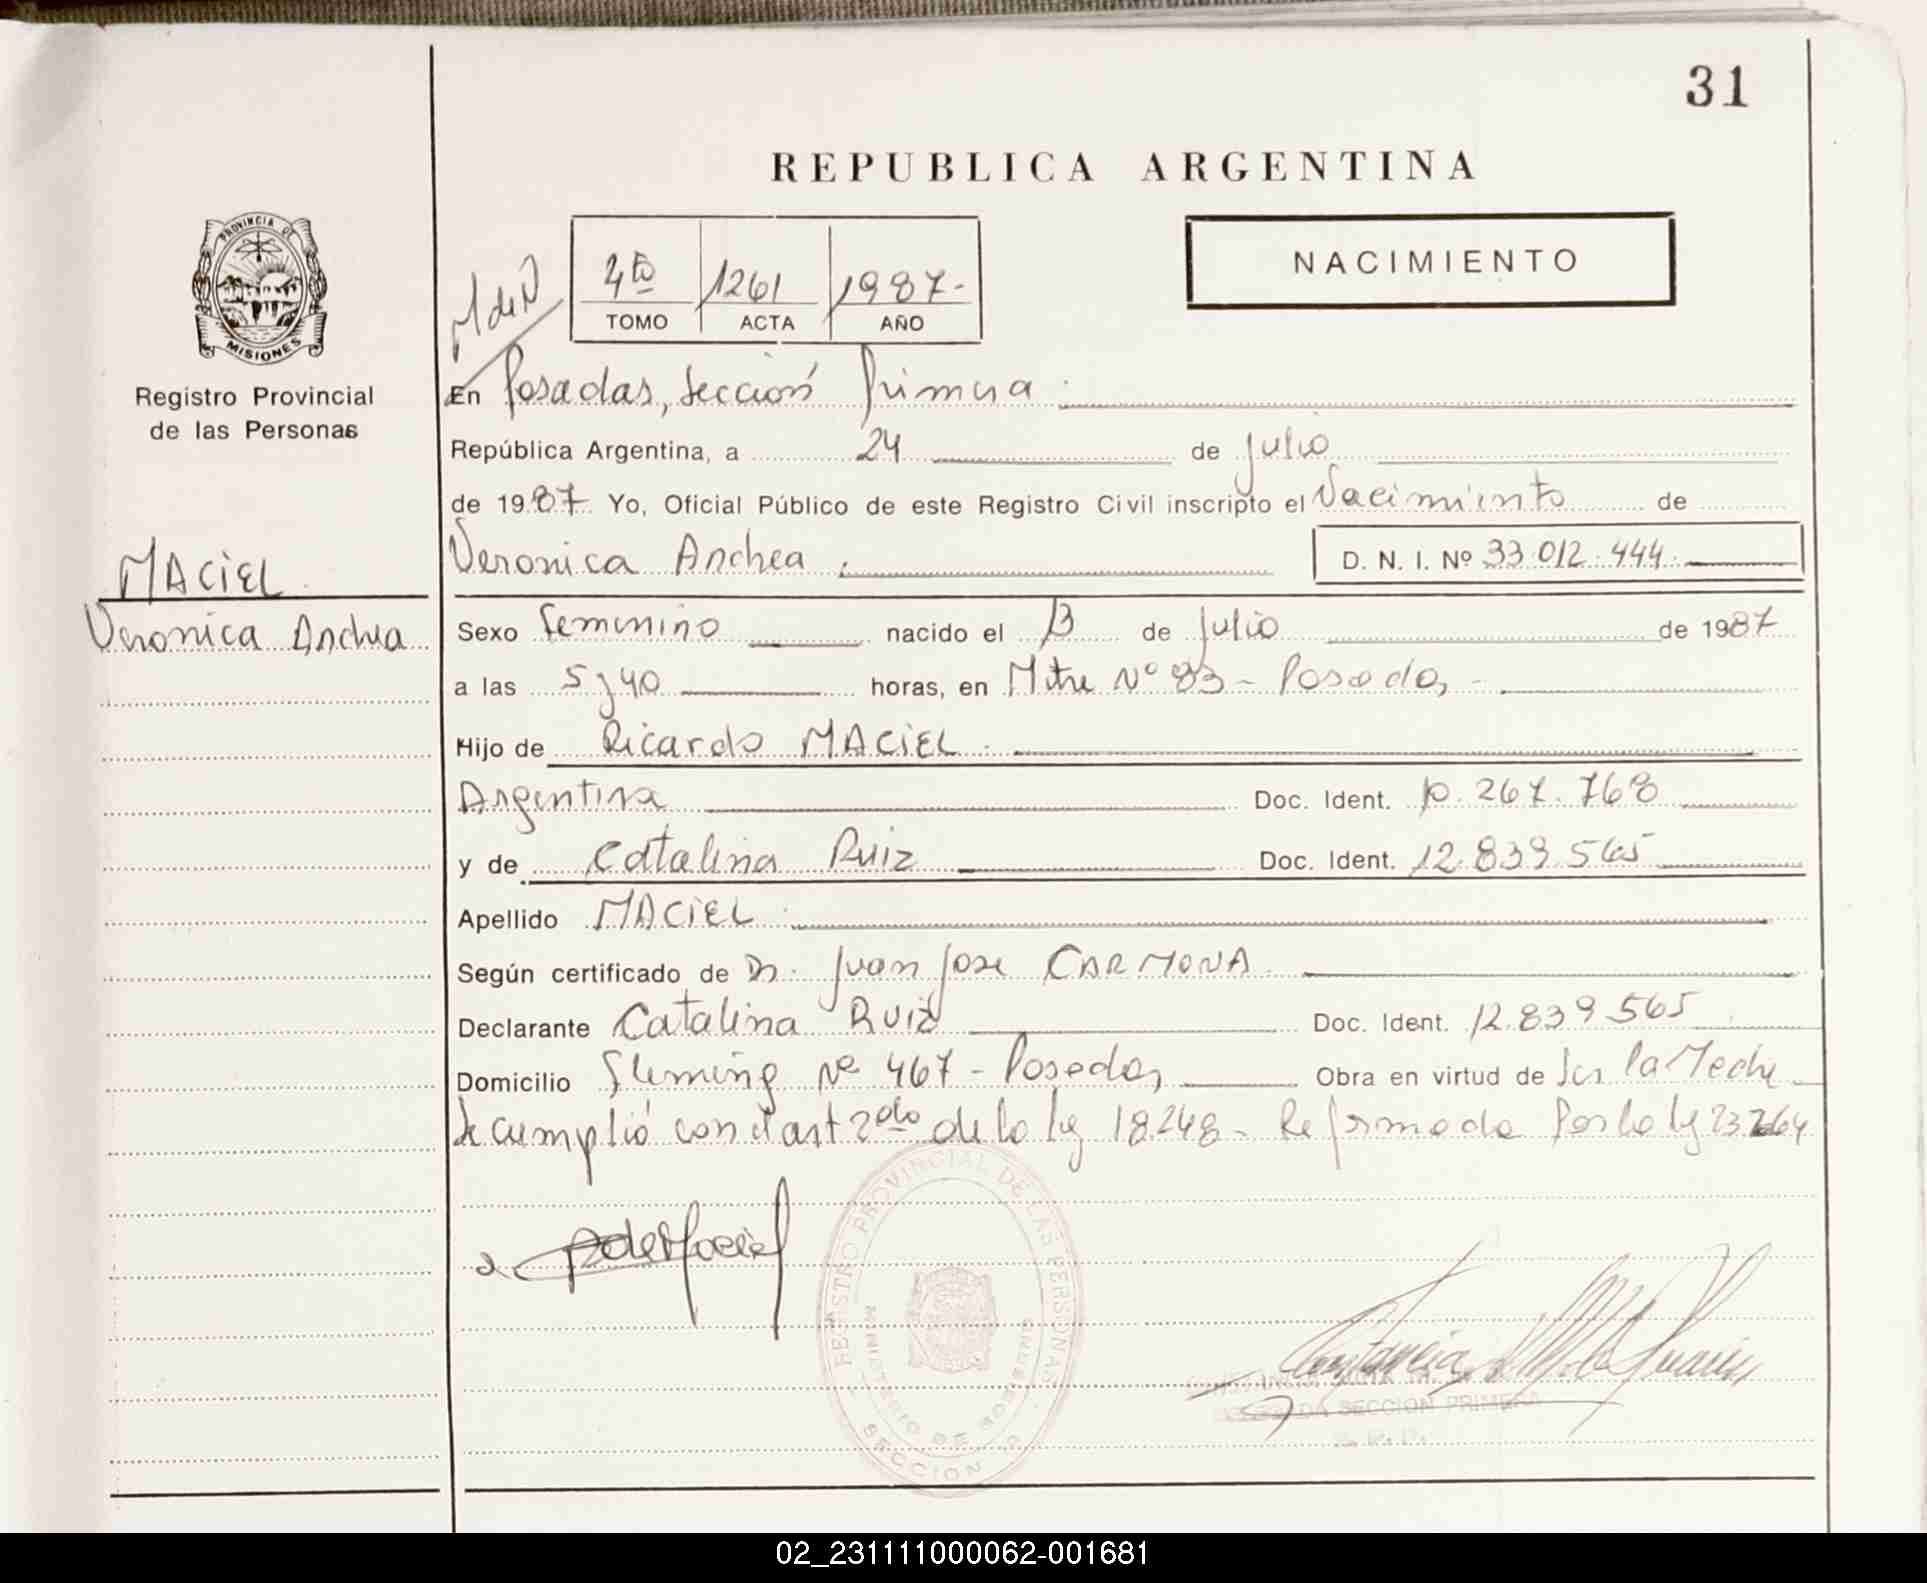 31
REPUBLICA ARGENTINA
PROVINCIA DE
MISIONES
Registro Provincial
de las Personas
M de N
4to 1261 1987.-
TOMO ACTA AÑO
NACIMIENTO
En Posadas, Sección Primera
República Argentina, a 24 de Julio
de 1987 Yo, Oficial Público de este Registro Civil inscripto el Nacimiento de
Veronica Andrea D. N. I. Nº 33.012.444
MACIEL
Veronica Andrea
Sexo Femenino nacido el 13 de Julio de 1987
a las 5 y 40 horas, en Mitre Nº 83 - Posadas -
Hijo de Ricardo MACIEL
Argentina Doc. Ident. 10.267.768
y de Catalina Ruiz Doc. Ident. 12.839.565
Apellido MACIEL
Según certificado de Dr. Juan Jose CARMONA
Declarante Catalina Ruiz Doc. Ident. 12.839.565
Domicilio Fleming Nº 467 - Posadas Obra en virtud de Ser la Madre
Se cumplió con el art 2do de la ley 18.248 - Reformada Por la ley 23264
R de Maciel
REGISTRO PROVINCIAL DE LAS PERSONAS
MINISTERIO DE GOBIERNO
SECCION
SECCION PRIMERA
02_231111000062-001681